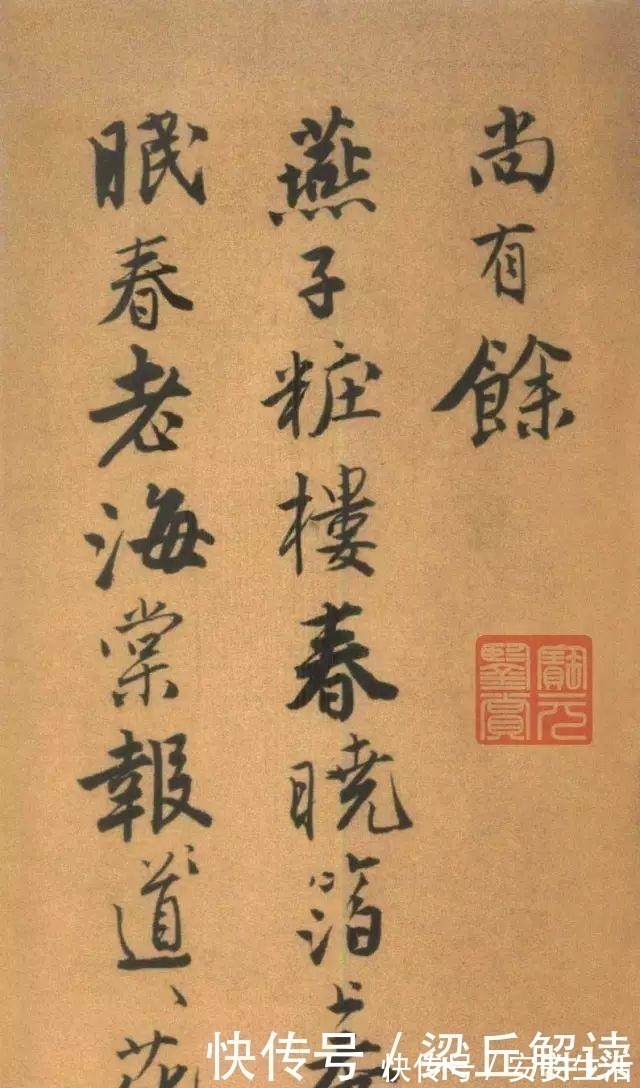 尚有餘
燕子粧樓春曉箔上春
眠春老海棠報道〻花
快传号 / 梁丘解读
快传号